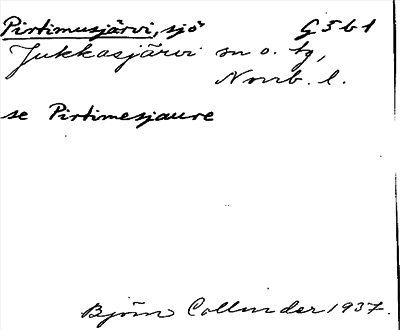 Pirtimusjärvi, sjö G5b1
Jukkasjärvi sn o. tg,
Norrb. l.
se Pirtimesjaure
Björn Collinder 1937.